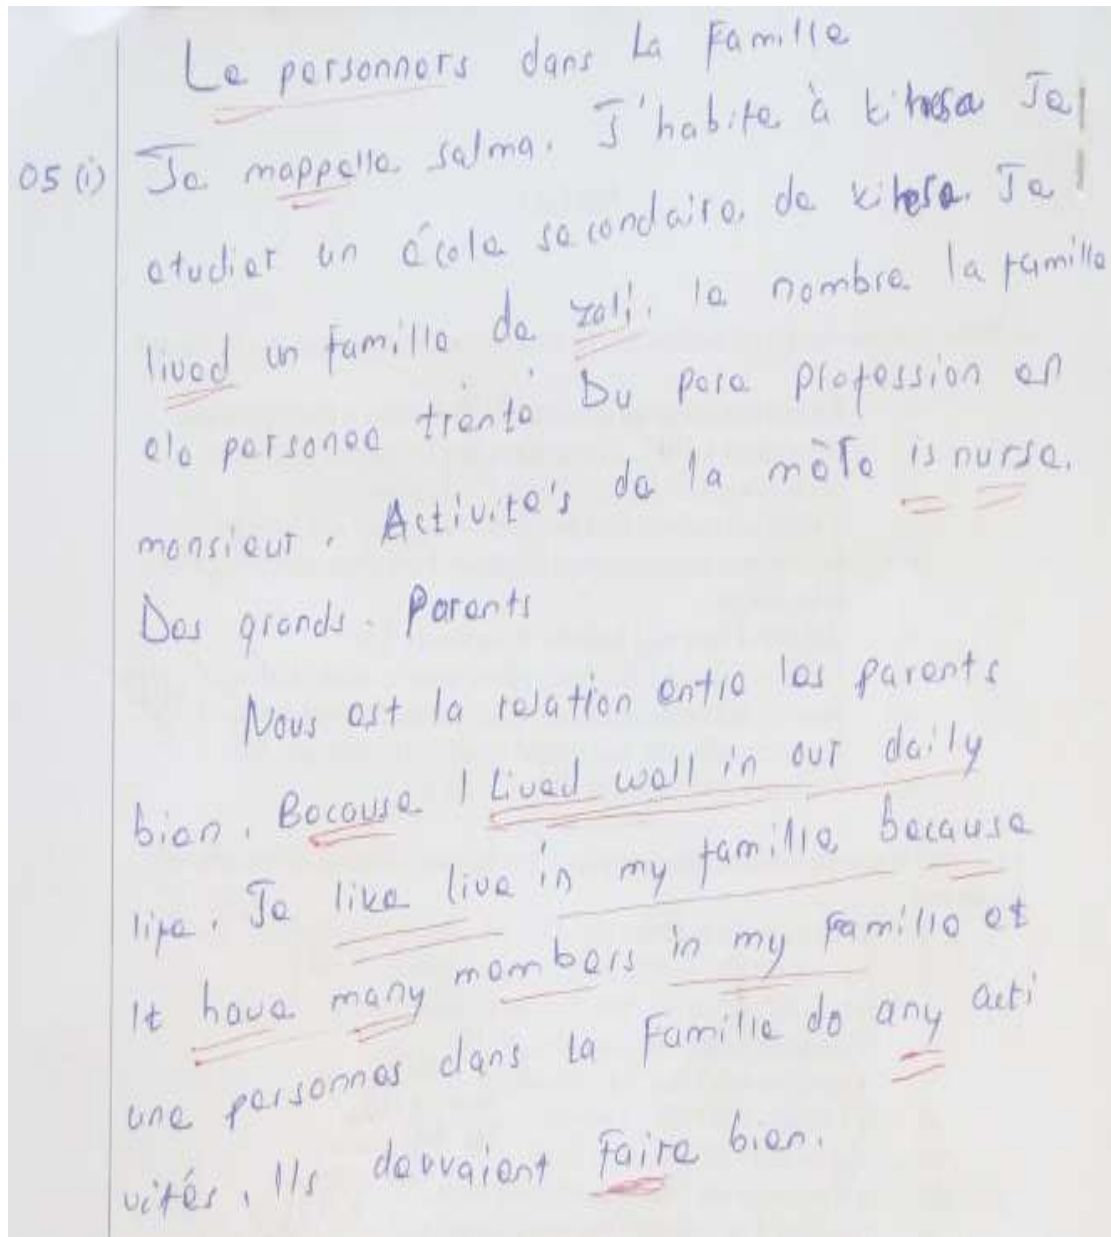 Le personners dans La Famille
05 (i) Je mappelle salma. J'habite à kihesa Je
etudier un école secondaire de kihesa. Je
lived un famille de zali. le nombre la famille
ele personee trente Du pere profession en
monsieur. Activite's de la mère is nurse.
Des grands. Parents
Nous est la relation entre les parents
bien. Because I Lived well in our daily
life. Je like live in my famille because
It have many members in my Famille et
une personnes dans La Famille do any acti
vités. Ils devvaient Faire bien.